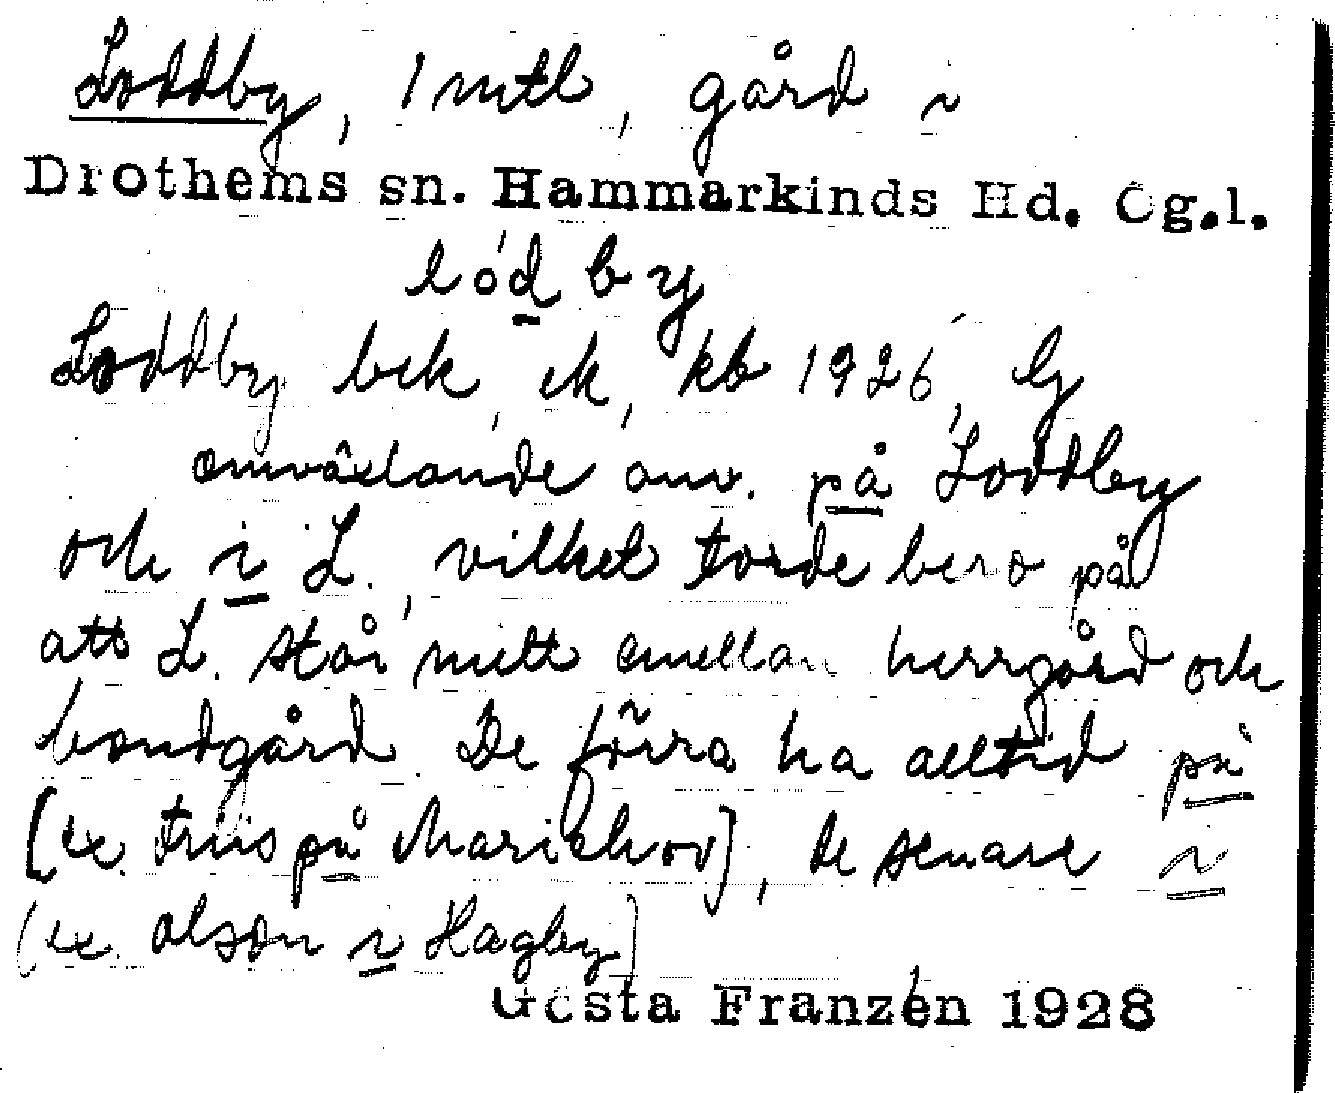 Loddby, 1 mtl, gård i
Drothems sn. Hammarkinds Hd. Ög.l.
lódby
Loddby bek, ek, kb 1926, Gj
omväxlande anv. på Loddby
och i L., vilket torde bero på
att L. står mitt emellan herrgård och
bondgård. De förra ha alltid på
[ex. Friis på Mariehov], de senare i
[ex. Olson i Hagby]
Gösta Franzén 1928